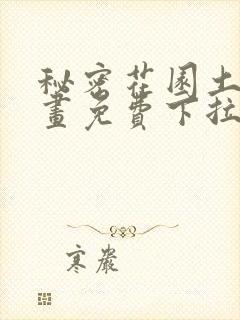 秘密花园土
画免费下拉
寒岩